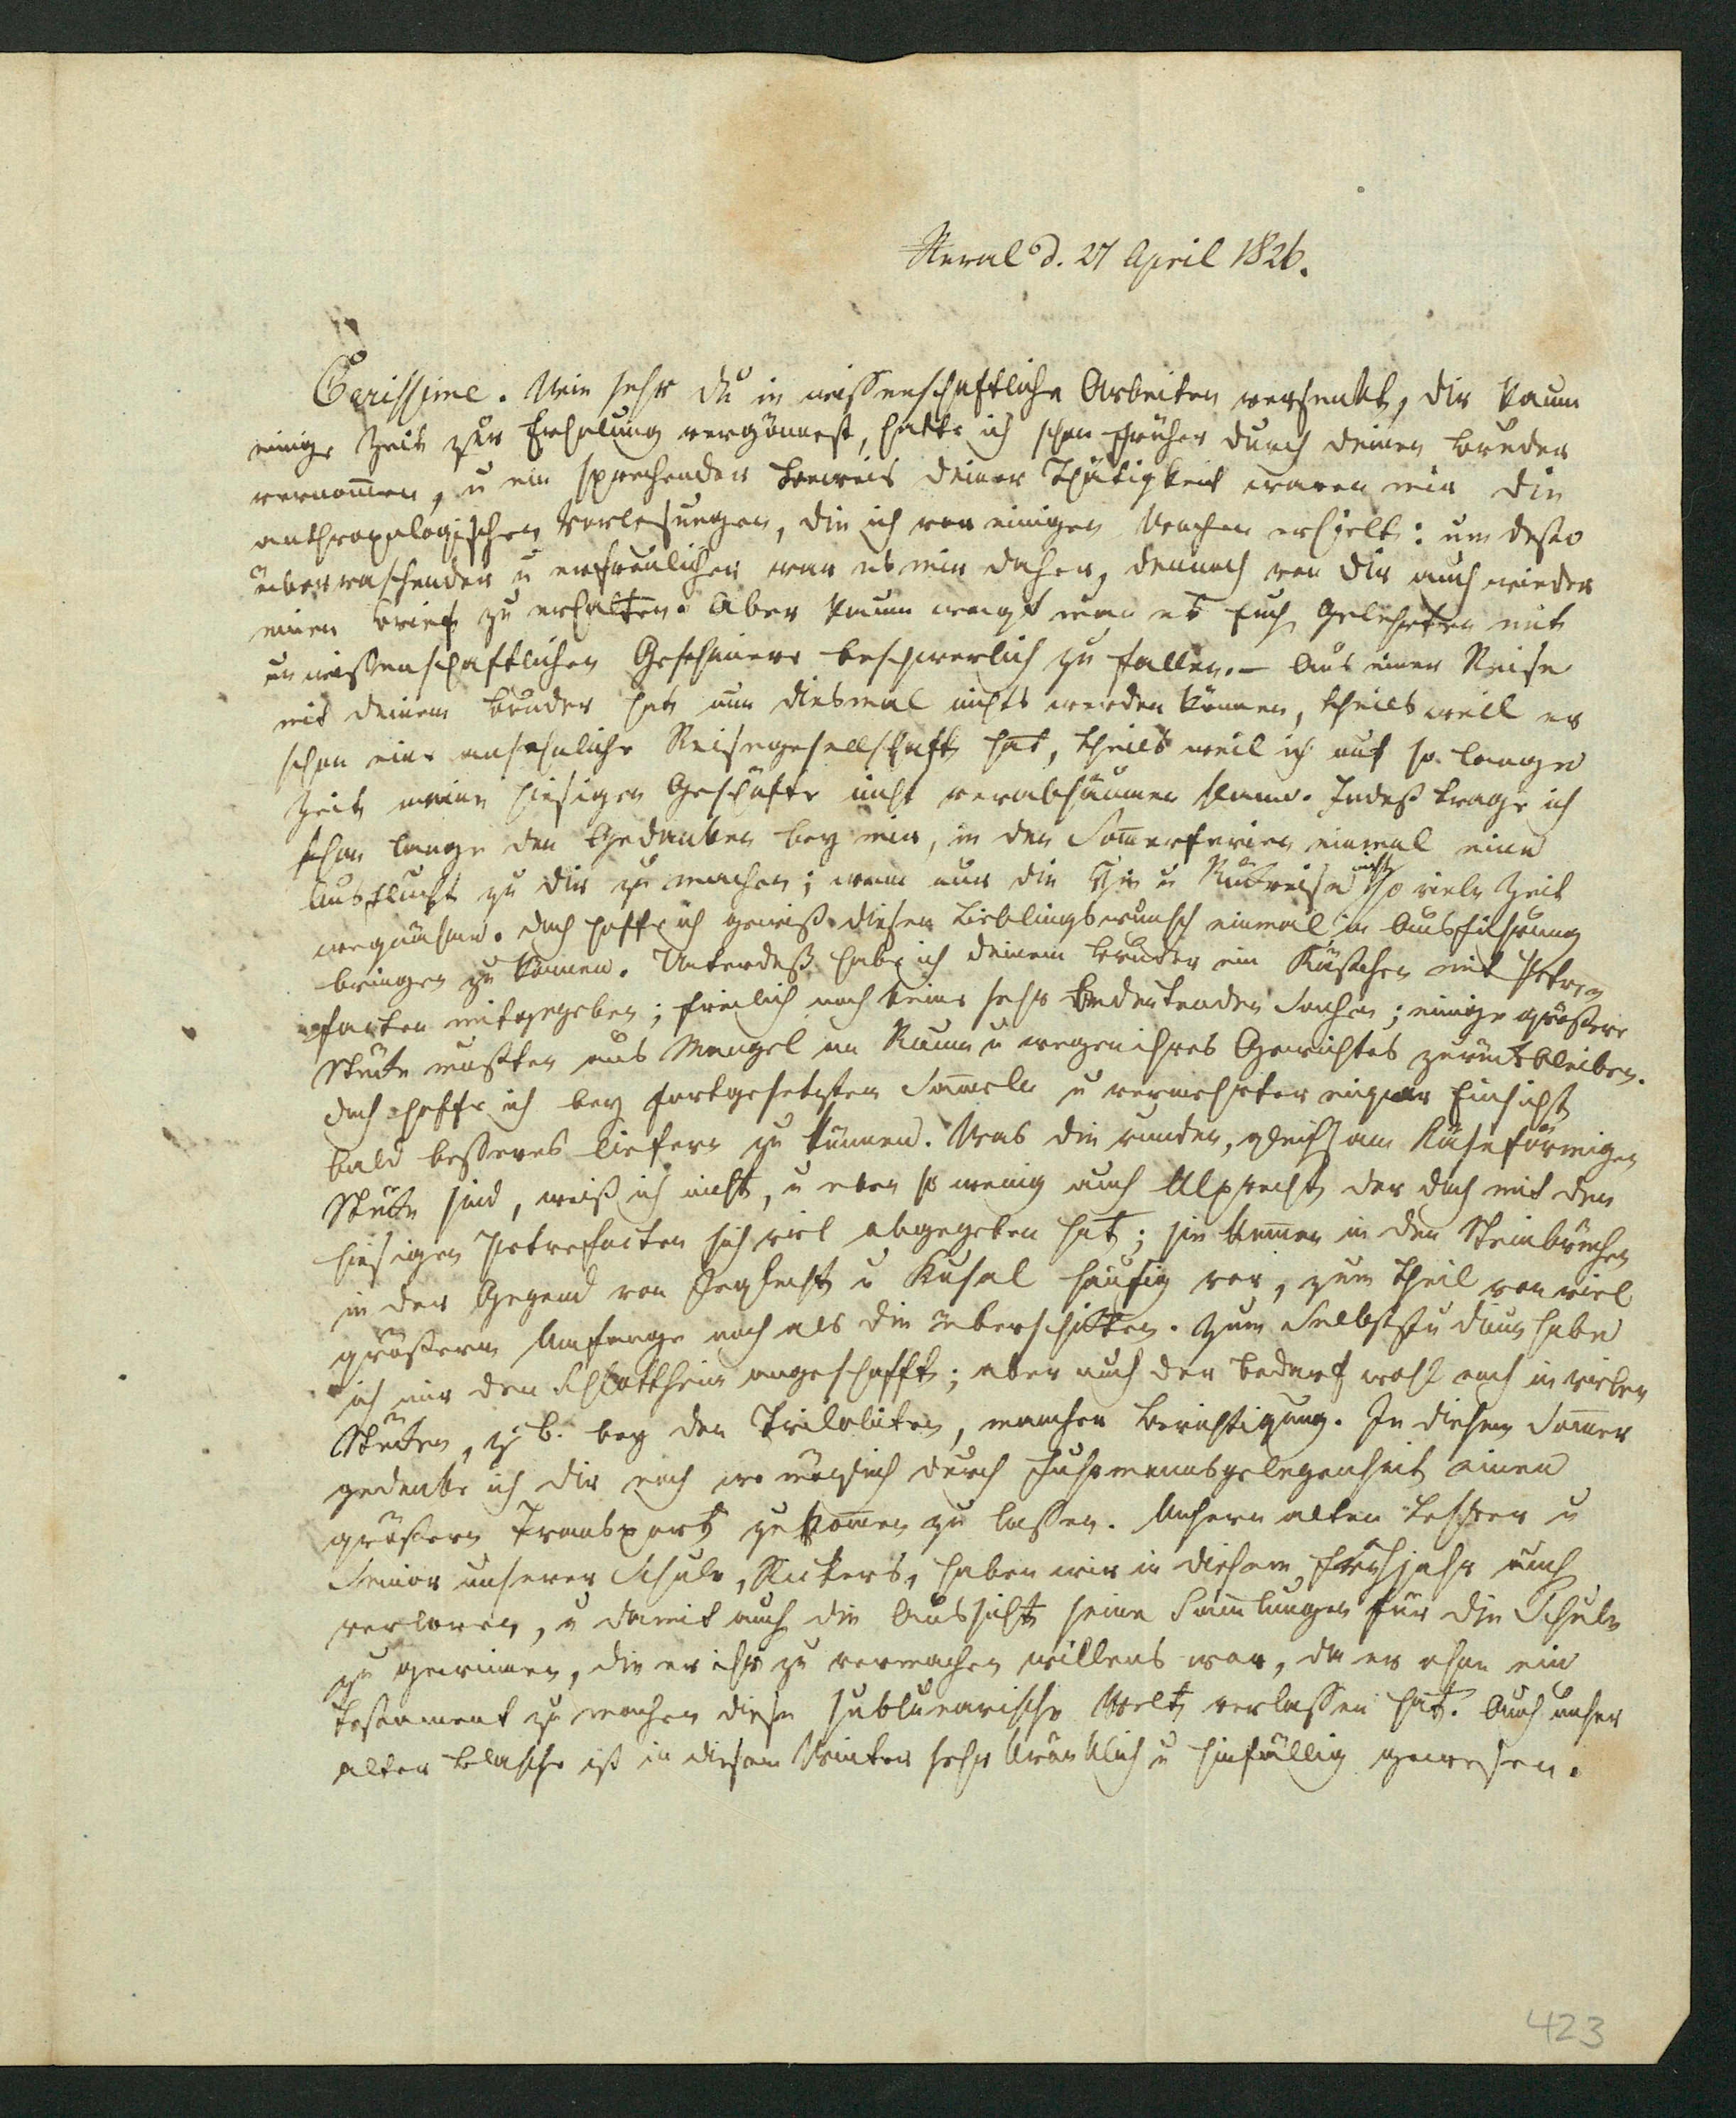 Reval d. 27 April 1826.
Carissime. Wie sehr du in wissenschaftliche Arbeiten versenkt, dir kaum
einige Zeit zur Erholung vergönnest, hatte ich schon früher durch deinen Bruder
vernom̄en, u ein sprechender Beweis deiner Thätigkeit waren mir die
anthropologischen Vorlesungen, die ich vor einigen Wochen erhielt: um desto
überraschender u erfreulicher war es mir daher, dennoch von dir auch wieder
einen Brief zu erhalten. Aber kaum wagt man es Euch Gelehrten mit
unwissenschaftlichen Geschmiere beschwerlich zu fallen. – Aus einer Reise
mit deinem Bruder hat nun diesmal nichts werden können, theils weil er
schon eine ansehnliche Reisegesellschaft hat, theils weil ich auf so lange
Zeit meine hiesigen Geschäfte nicht verabsäumen kann. Indeß trage ich
schon lange den Gedanken bey mir, in den Som̄erferien einmal eine
Ausflucht zu dir zu machen; wenn nur die Hin u Rükreise nicht so viele Zeit
wegnähme. Doch hoffe ich gewiß diesen Lieblingswunsch einmal in Ausführung
bringen zu können. Unterdeß habe ich deinem Bruder ein Kästchen mit Petre-
facten mitgegeben; freilich noch keine sehr bedeutenden Sachen; einige größere
Stüke mußten aus Mangel an Raum u wegen ihres Gewichtes zurükbleiben.
Doch hoffe ich bey fortgesetztem Sam̄eln u vermehrter eigner Einsicht
bald besseres liefern zu können. Was die runden, gleichsam käseförmigen
Stüke sind, weiß ich nicht, u eben so wenig auch Ulprecht der doch mit den
hiesigen Petrefacten sich viel abgegeben hat; sie kom̄en in den Steinbrüchen
in der Gegend von Jegelecht u Kusal häufig vor, zum Theil von viel
größerm Umfange noch als die überschikten. Zum Selbststudium habe
ich mir den Schlottheim angeschafft; aber auch der bedarf wohl noch in vielen
Stüken, z. B. bey den Trilobiten, mancher Berichtigung. In diesem Som̄er
gedenke ich dir noch wo möglich durch Fuhrmannsgelegenheit einen
größern Transport zukom̄en zu lassen. Unsern alten Lehrer u
Senior unserer Schule, Rickers, haben wir in diesem Frühjahr auch
verloren, u damit auch die Aussicht seine Sam̄lungen für die Schule
zu gewinnen, die er ihr zu vermachen willens war, da er ohne ein
Testament zu machen diese sublunarische Welt verlassen hat. Auch unser
alter Blasche ist in diesem Winter sehr kränklich u hinfällig gewesen.
423